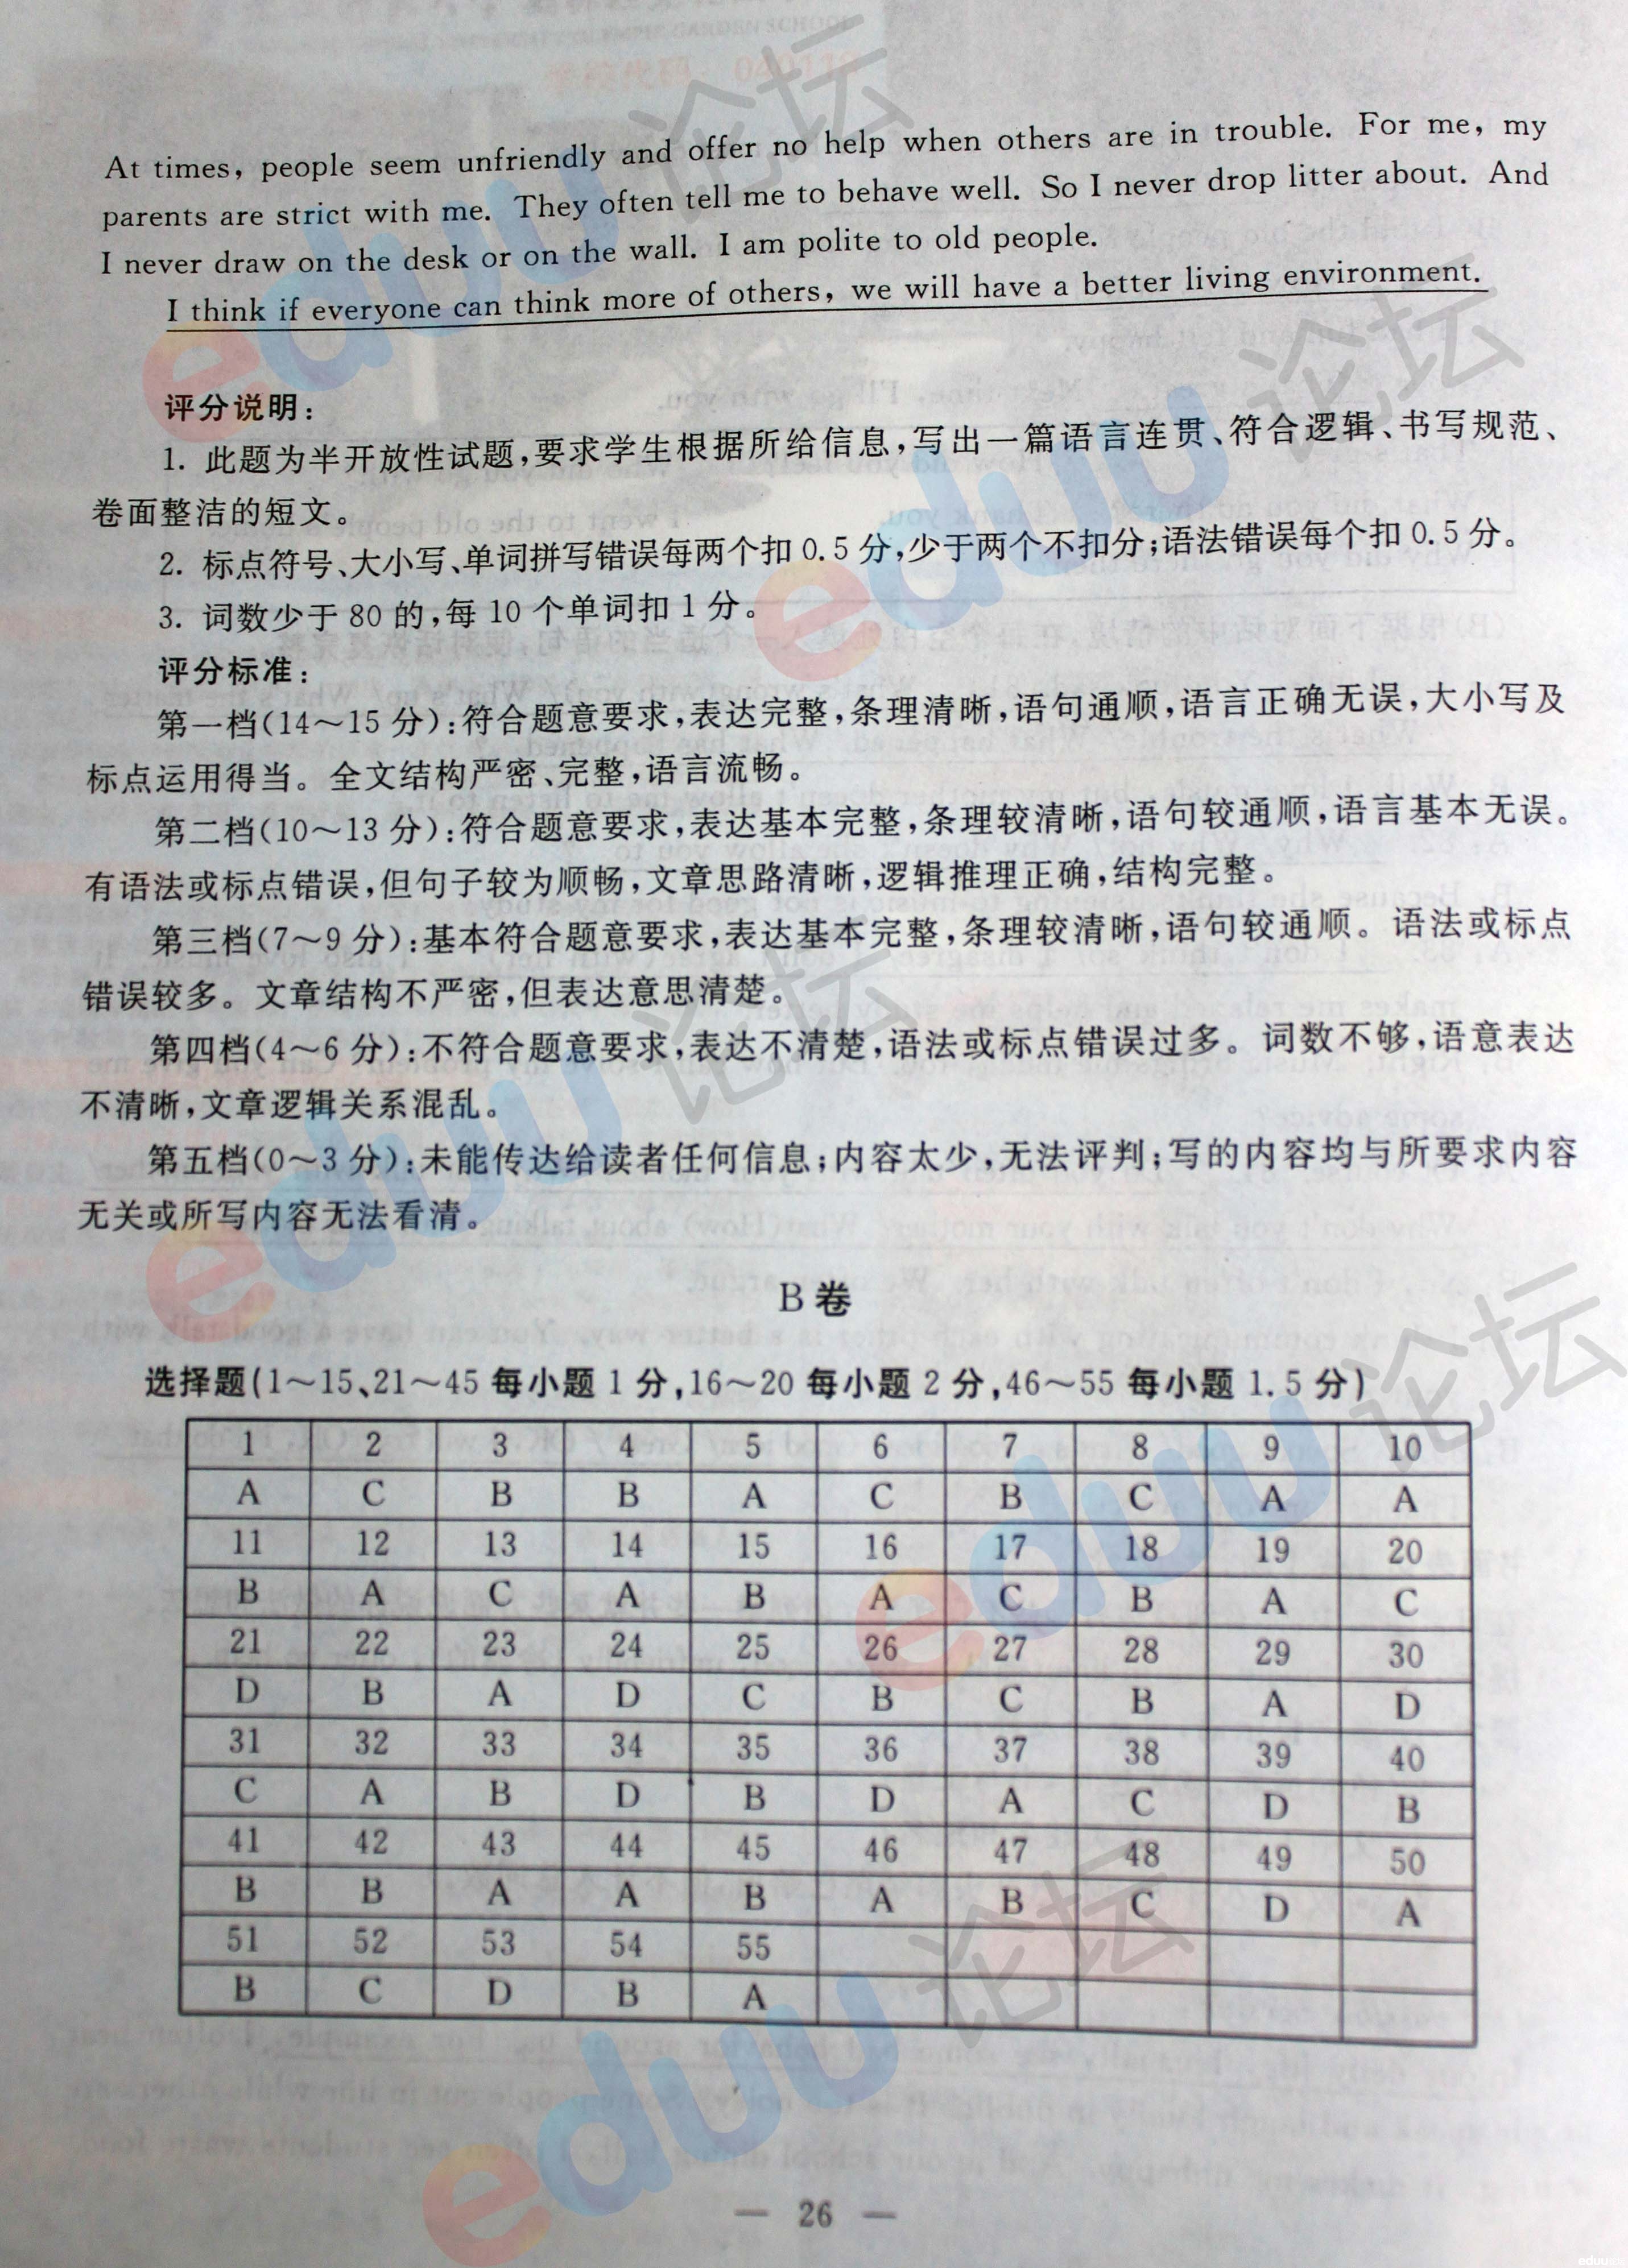 At times, people seem unfriendly and offer no help when others are in trouble. For me, my
parents are strict with me. They often tell me to behave well. So I never drop litter about. And
I never draw on the desk or on the wall. I am polite to old people.
I think if everyone can think more of others, we will have a better living environment.
评分说明：
1. 此题为半开放性试题，要求学生根据所给信息，写出一篇语言连贯、符合逻辑、书写规范、
卷面整洁的短文。
2. 标点符号、大小写、单词拼写错误每两个扣 0.5 分，少于两个不扣分；语法错误每个扣 0.5 分。
3. 词数少于 80 的，每 10 个单词扣 1 分。
评分标准：
第一档(14～15 分)：符合题意要求，表达完整，条理清晰，语句通顺，语言正确无误，大小写及
标点运用得当。全文结构严密、完整，语言流畅。
第二档(10～13 分)：符合题意要求，表达基本完整，条理较清晰，语句较通顺，语言基本无误。
有语法或标点错误，但句子较为顺畅，文章思路清晰，逻辑推理正确，结构完整。
第三档(7～9 分)：基本符合题意要求，表达基本完整，条理较清晰，语句较通顺。语法或标点
错误较多。文章结构不严密，但表达意思清楚。
第四档(4～6 分)：不符合题意要求，表达不清楚，语法或标点错误过多。词数不够，语意表达
不清晰，文章逻辑关系混乱。
第五档(0～3 分)：未能传达给读者任何信息；内容太少，无法评判；写的内容均与所要求内容
无关或所写内容无法看清。
B 卷
选择题(1～15、21～45 每小题 1 分，16～20 每小题 2 分，46～55 每小题 1.5 分)
1 2 3 4 5 6 7 8 9 10
A C B B A C B C A A
11 12 13 14 15 16 17 18 19 20
B A C A B A C B A C
21 22 23 24 25 26 27 28 29 30
D B A D C B C B A D
31 32 33 34 35 36 37 38 39 40
C A B D B D A C D B
41 42 43 44 45 46 47 48 49 50
B B A A B A B C D A
51 52 53 54 55
B C D B A
— 26 —
eduu 论坛
eduu 论坛
eduu 论坛
eduu 论坛
eduu 论坛